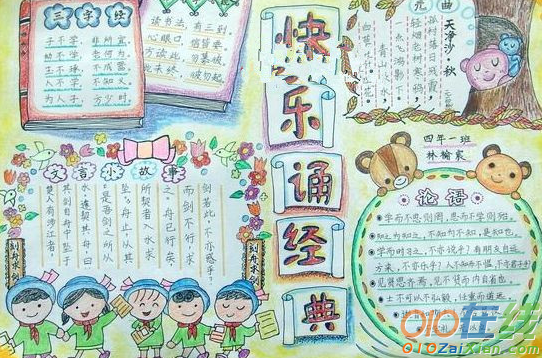 三字经
子不学，非所宜。
幼不学，老何为。
玉不琢，不成器。
人不学，不知义。
为人子，方少时。
读书法，有三到。
心眼口，信皆要。
方读此，勿慕彼。
此未终，彼勿起。
快乐诵经典
元曲
天净沙·秋
孤村落日残霞，
轻烟老树寒鸦，
一点飞鸿影下。
青山绿水，
四年一班
文言小故事
刻舟求剑
楚人有涉江者，
其剑自舟中坠于
水，遽契其舟，曰：
“是吾剑之所从
坠。”舟止，从其
所契者入水求
之。舟已行矣，
而剑不行，求
剑若此，不亦惑乎？
刻舟求剑
论语
学而不思则罔，思而不学则殆。
知之为知之，不知为不知，是知也。
学而时习之，不亦说乎？有朋友自远
方来，不亦乐乎？人不知而不愠，不亦君子乎？
见贤思齐焉，见不贤而内自省也。
士不可以不弘毅，任重而道远。
OIO在线
OIOZaiXian.Com